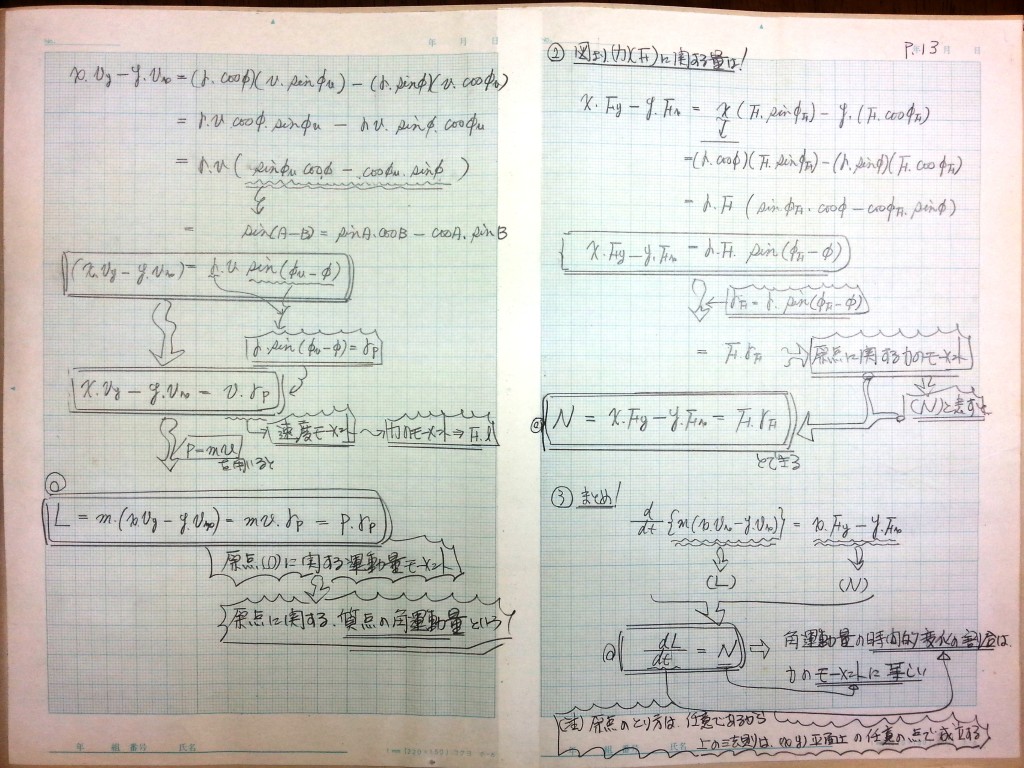 年 月 日
x.vy − y.vx = (r.cosφ)(v.sinφv) − (r.sinφ)(v.cosφv)
= r.v cosφ.sinφv − r.v.sinφ.cosφv
= r.v ( sinφv cosφ − cosφv.sinφ )
= sin(A−B) = sinA.cosB − cosA.sinB
(x.vy − y.vx) = r.v sin(φv − φ)
r.sin(φv−φ) = rp
x.vy − y.vx = v.rp
速度モーメント 力のモーメント⇒F.l
P=mv
を用いると
L = m.(x.vy − y.vx) = mv.rp = P.rp
原点(O)に関する運動量モーメント
原点に関する.質点の角運動量という
年 組 番号 氏名
P.13
年 月 日
② 図より(力)(F)に関する量は!
x.Fy − y.Fx = x (F.sinφF) − y.(F.cosφF)
= (r.cosφ)(F.sinφF) − (r.sinφ)(F.cosφF)
= r.F (sinφF.cosφ − cosφF.sinφ)
x.Fy − y.Fx = r.F. sin(φF − φ)
rF = r.sin(φF−φ)
= F.rF 原点に関する力のモーメント
(N)と表すと
N = x.Fy − y.Fx = F.rF
とできる
③ まとめ!
d/dt {m(x.vy − y.vx)} = x.Fy − y.Fx
(L) (N)
dL/dt = N ⇒ 角運動量の時間的変化の割合は.
力のモーメントに等しい
(注) 原点のとり方は.任意であるから
上の法則は.(x.y)平面上の任意の点で成立する
氏名